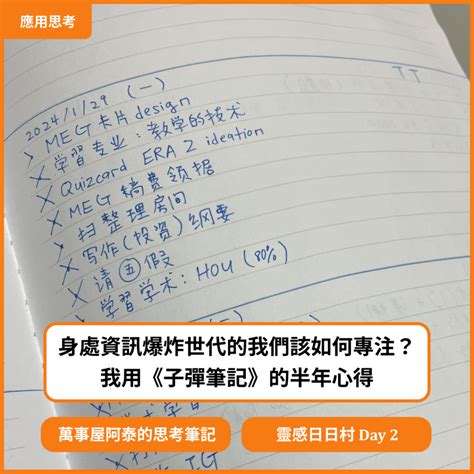 應用思考
2024/1/29 (一)
> MEG 卡片 design
× 学習专业：教学的技术
× Quizcard ERA 2 ideation
× MEG 稿費领据
× 扫整理房间
× 写作(投资)纲要
× 请㊄假
> 学習学术：HOU (80%)
身處資訊爆炸世代的我們該如何專注？
我用《子彈筆記》的半年心得
萬事屋阿泰的思考筆記
靈感日日村 Day 2